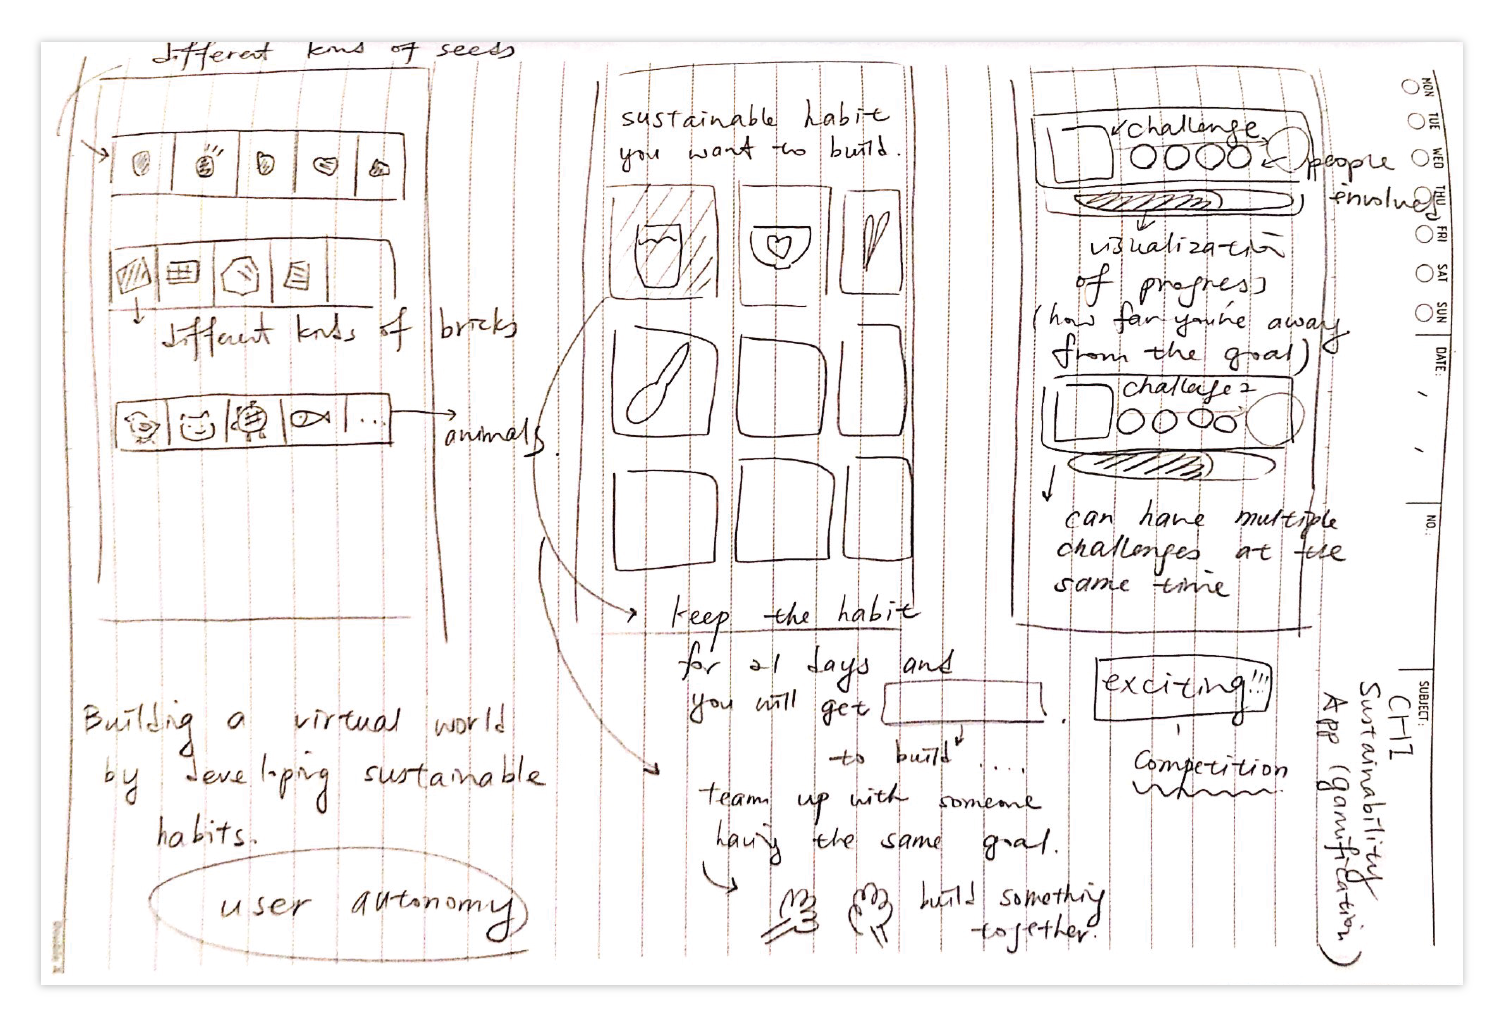 different kinds of seeds
different kinds of bricks
animals.
Building a virtual world
by developing sustainable
habits.
user autonomy
sustainable habit
you want to build.
keep the habit
for 21 days and
you will get .
to build ....
team up with someone
having the same goal.
build something
together.
challenge
people
involved
visualization
of progress
(how far you're away
from the goal)
challenge 2
can have multiple
challenges at the
same time
exciting!!!
Competition
MON
TUE
WED
THU
FRI
SAT
SUN
DATE:
NO.:
SUBJECT:
CHI
Sustainability
App (gamification)